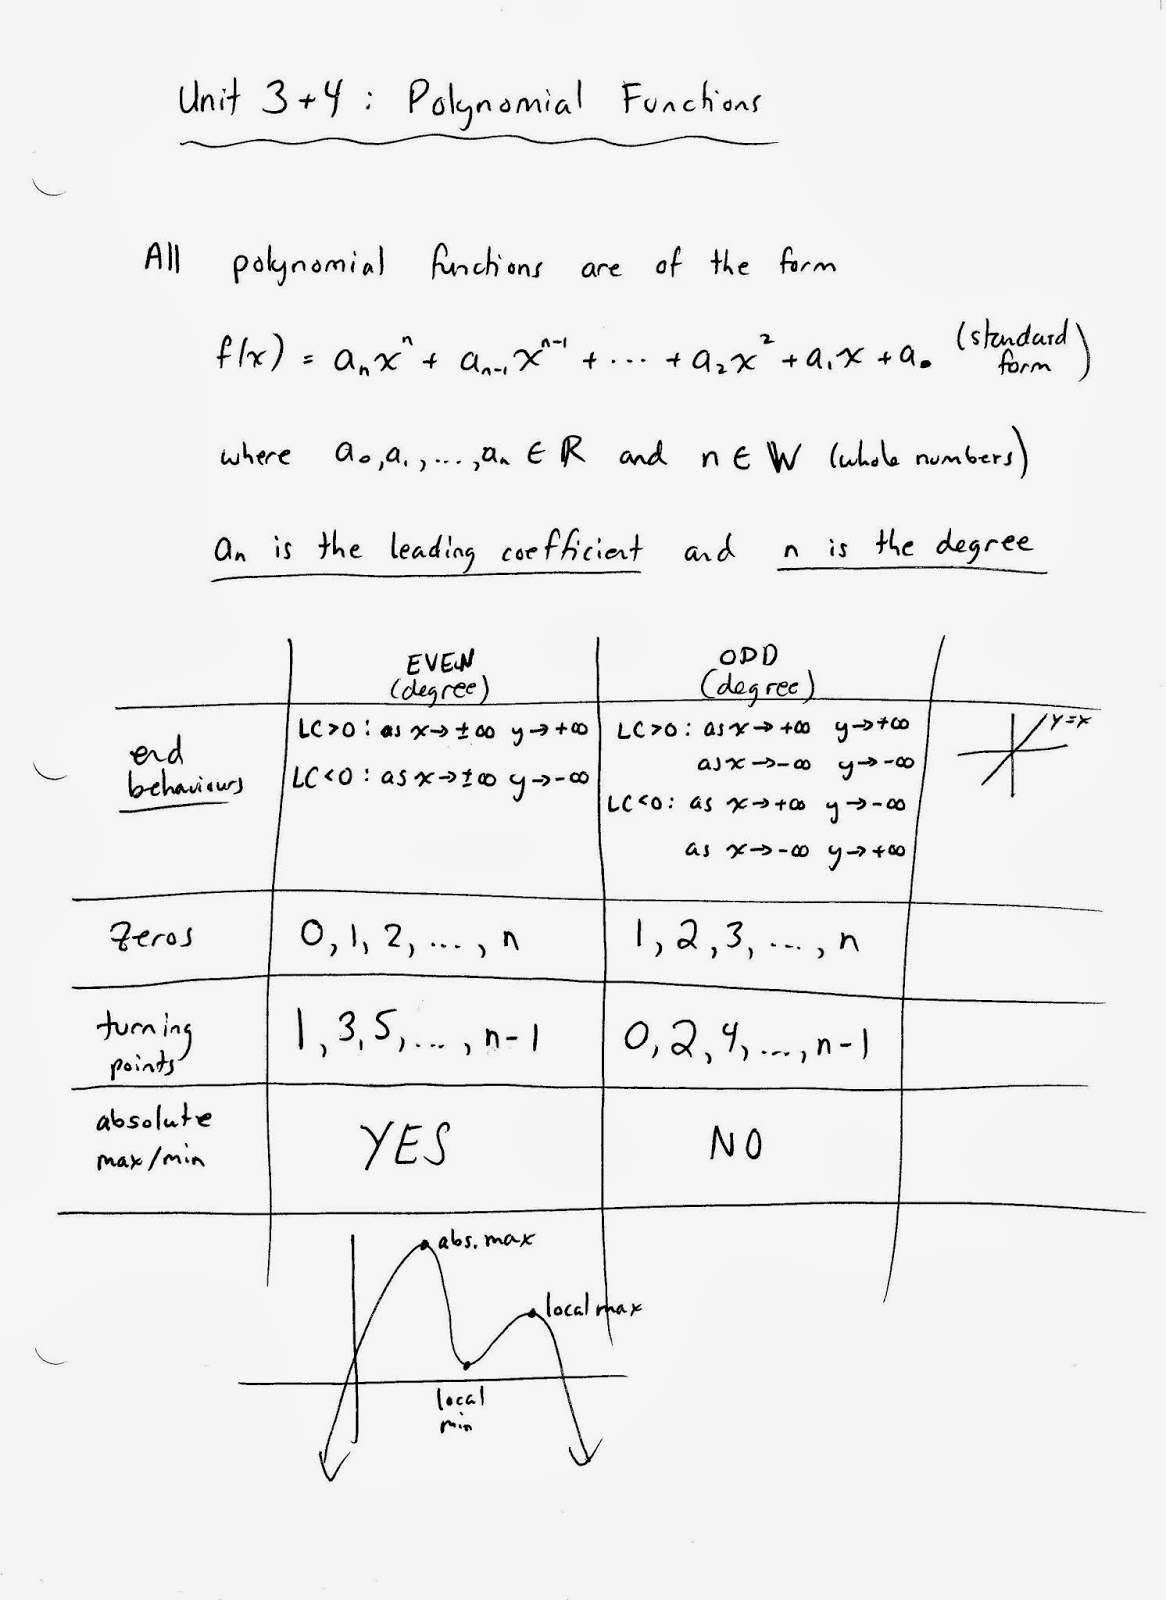 Unit 3+4 : Polynomial Functions
All polynomial functions are of the form
f(x) = aₙxⁿ + aₙ₋₁xⁿ⁻¹ + ... + a₂x² + a₁x + a₀ (standard form)
where a₀,a₁,...,aₙ ∈ ℝ and n ∈ W (whole numbers)
aₙ is the leading coefficient and n is the degree
EVEN (degree)
ODD (degree)
end behaviours
LC>0 : as x→±∞ y→+∞
LC<0 : as x→±∞ y→-∞
LC>0 : as x→+∞ y→+∞
as x→-∞ y→-∞
LC<0 : as x→+∞ y→-∞
as x→-∞ y→+∞
y=x
zeros
0, 1, 2, ..., n
1, 2, 3, ..., n
turning points
1, 3, 5, ..., n-1
0, 2, 4, ..., n-1
absolute max/min
YES
NO
abs. max
local max
local min